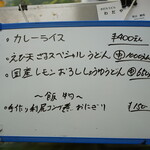 ・カレーライス ¥400
・えび天ざるスペシャルうどん 中1000
・国産レモンおろししょうゆうどん 中650
〜飯物〜
・手作り利尻コンブ おにぎり ¥150